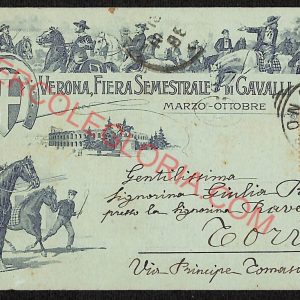 VERONA, FIERA SEMESTRALE DI CAVALLI
MARZO-OTTOBRE
ERCOLEGLORIA.COM
Gentilissima
Signorina Giulia
presso la Signorina
Torr
Via Principe Tomaso